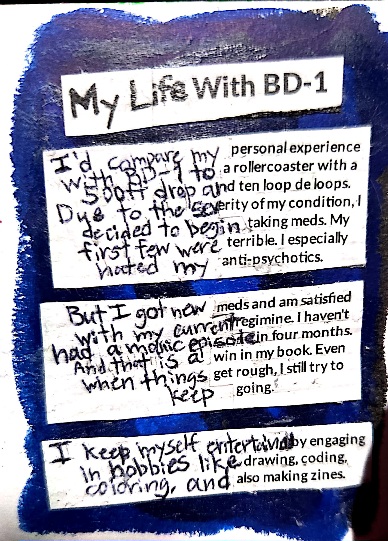 My Life With BD-1
I'd compare my personal experience
with BD-1 to a rollercoaster with a
500ft drop and ten loop de loops.
Due to the severity of my condition, I
decided to begin taking meds. My
first few were terrible. I especially
hated my anti-psychotics.
But I got new meds and am satisfied
with my current regimine. I haven't
had a manic episode in four months.
And that is a win in my book. Even
when things get rough, I still try to
keep going.
I keep myself entertained by engaging
in hobbies like drawing, coding,
coloring, and also making zines.